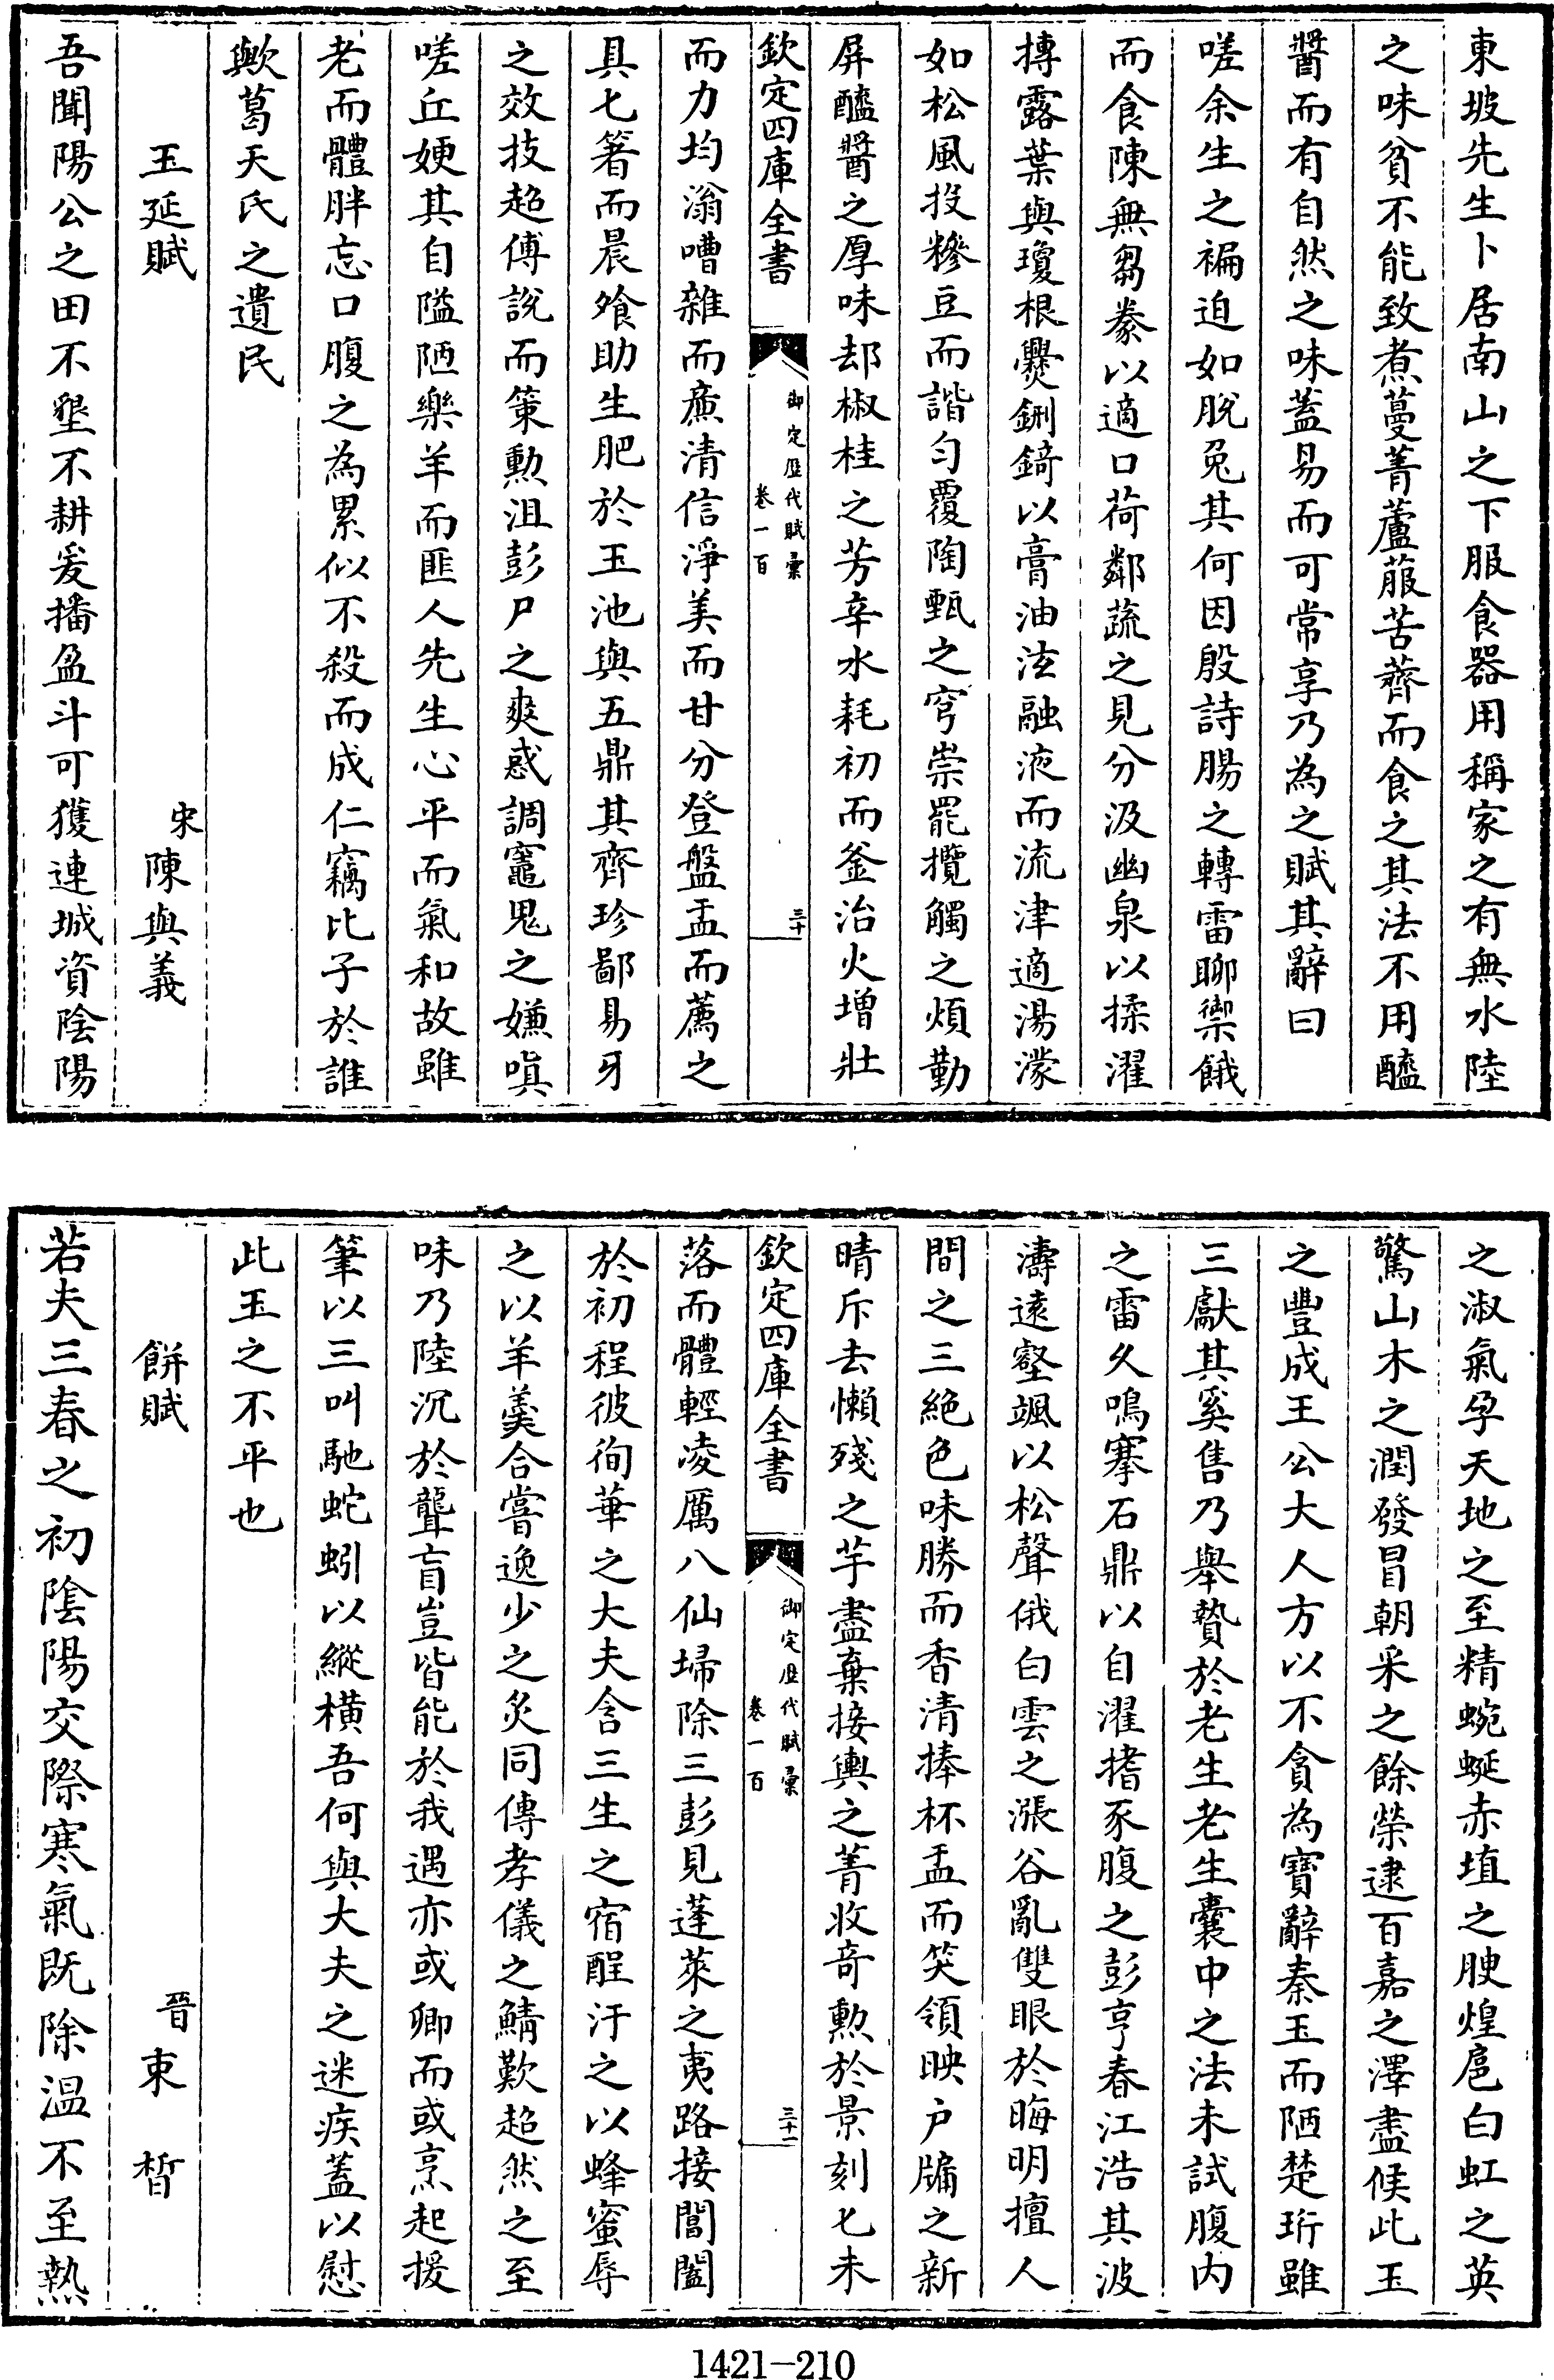 東坡先生卜居南山之下服食器用稱家之有無水陸
之味貧不能致煮蔓菁蘆菔苦薺而食之其法不用醯
醬而有自然之味蓋易而可常享乃為之賦其辭曰
嗟余生之褊迫如脫兔其何因殷詩腸之轉雷聊禦餓
而食陳無芻豢以適口荷鄰蔬之見分汲幽泉以揉濯
摶露葉與瓊根爨鉶錡以膏油泫融液而流津適湯濛
如松風投糝豆而諧勻覆陶甄之穹崇罷攪觸之煩勤
屏醯醬之厚味却椒桂之芳辛水耗初而釜治火增壯
欽定四庫全書
御定歴代賦彚
卷一百
三十
而力均滃嘈雜而麃清信淨美而甘分登盤盂而薦之
具匕箸而晨飧助生肥於玉池與五鼎其齊珍鄙易牙
之效技超傅說而策勲沮彭尸之爽惑調竈鬼之嫌嗔
嗟丘嫂其自隘陋樂羊而匪人先生心平而氣和故雖
老而體胖忘口腹之為累似不殺而成仁竊比子於誰
歟葛天氏之遺民
玉延賦
宋陳與義
吾聞陽公之田不墾不耕爰播盈斗可獲連城資陰陽
之淑氣孕天地之至精蜿蜒赤埴之腴煌扈白虹之英
驚山木之潤發冒朝采之餘榮逮百嘉之澤盡候此玉
之豐成王公大人方以不貪為寶辭秦玉而陋楚珩雖
三獻其奚售乃舉贄於老生老生囊中之法未試腹内
之雷久鳴搴石鼎以自濯搘豕腹之彭亨春江浩其波
濤遠壑颯以松聲俄白雲之漲谷亂雙眼於晦明擅人
間之三絶色味勝而香清捧杯盂而笑領映户牖之新
晴斥去懶殘之芋盡棄接輿之菁收奇勲於景刻匕未
欽定四庫全書
御定歴代賦彚
卷一百
三十一
落而體輕凌厲八仙埽除三彭見蓬萊之夷路接閶闔
於初程彼徇華之大夫含三生之宿酲汙之以蜂蜜辱
之以羊羹合嘗逸少之炙同傳孝儀之鯖歎超然之至
味乃陸沉於聾盲豈皆能於我遇亦或卿而或烹起援
筆以三叫馳蛇蚓以縱横吾何與大夫之迷疾蓋以慰
此玉之不平也
餅賦
晉束晳
若夫三春之初陰陽交際寒氣既除温不至熱
1421-210